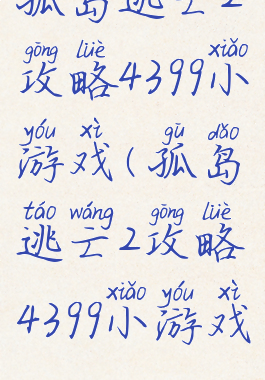 孤岛逃亡2
gōng lüè xiǎo
攻略4399小
yóu xì gū dǎo
游戏(孤岛
táo wáng gōng lüè
逃亡2攻略
xiǎo yóu xì
4399小游戏